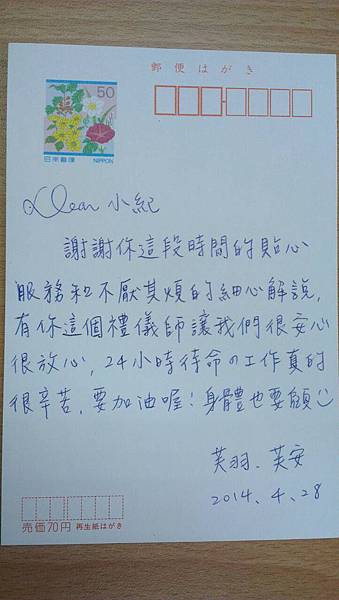 郵便はがき
50
日本郵便
NIPPON
Dear 小紀
謝謝你這段時間的貼心
服務和不厭其煩的細心解說,
有你這個禮儀師讓我們很安心
很放心,24小時待命の工作真的
很辛苦,要加油喔!身體也要顧
芙羽、芙安
2014、4、28
売価70円 再生紙はがき